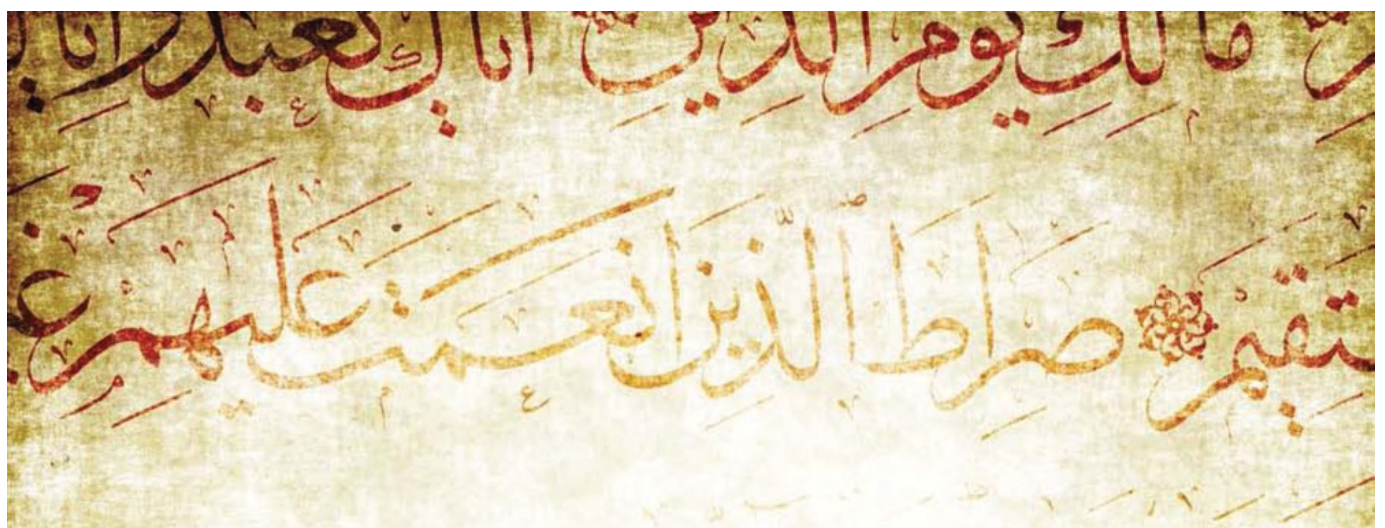 مالك يوم الدين اياك نعبد واياك
صِرَاطَ ٱلَّذِينَ انعمت عليهم